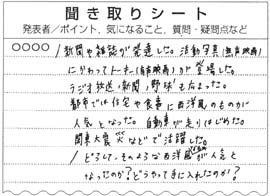 聞き取りシート
発表者／ポイント、気になること、質問・疑問点など
○○○○ ／新聞や雑誌が発達した。活動写真(無声映画)
にかわってトーキー(有声映画)が登場した。
ラジオ放送(新聞)野球も広まった。
都市では住宅や食事に西洋風のものが
人気となった。自動車が走りはじめた。
関東大震災などで活躍した。
／どうして、そのような西洋風が人気と
なったのか？どうやって手に入れたのか？